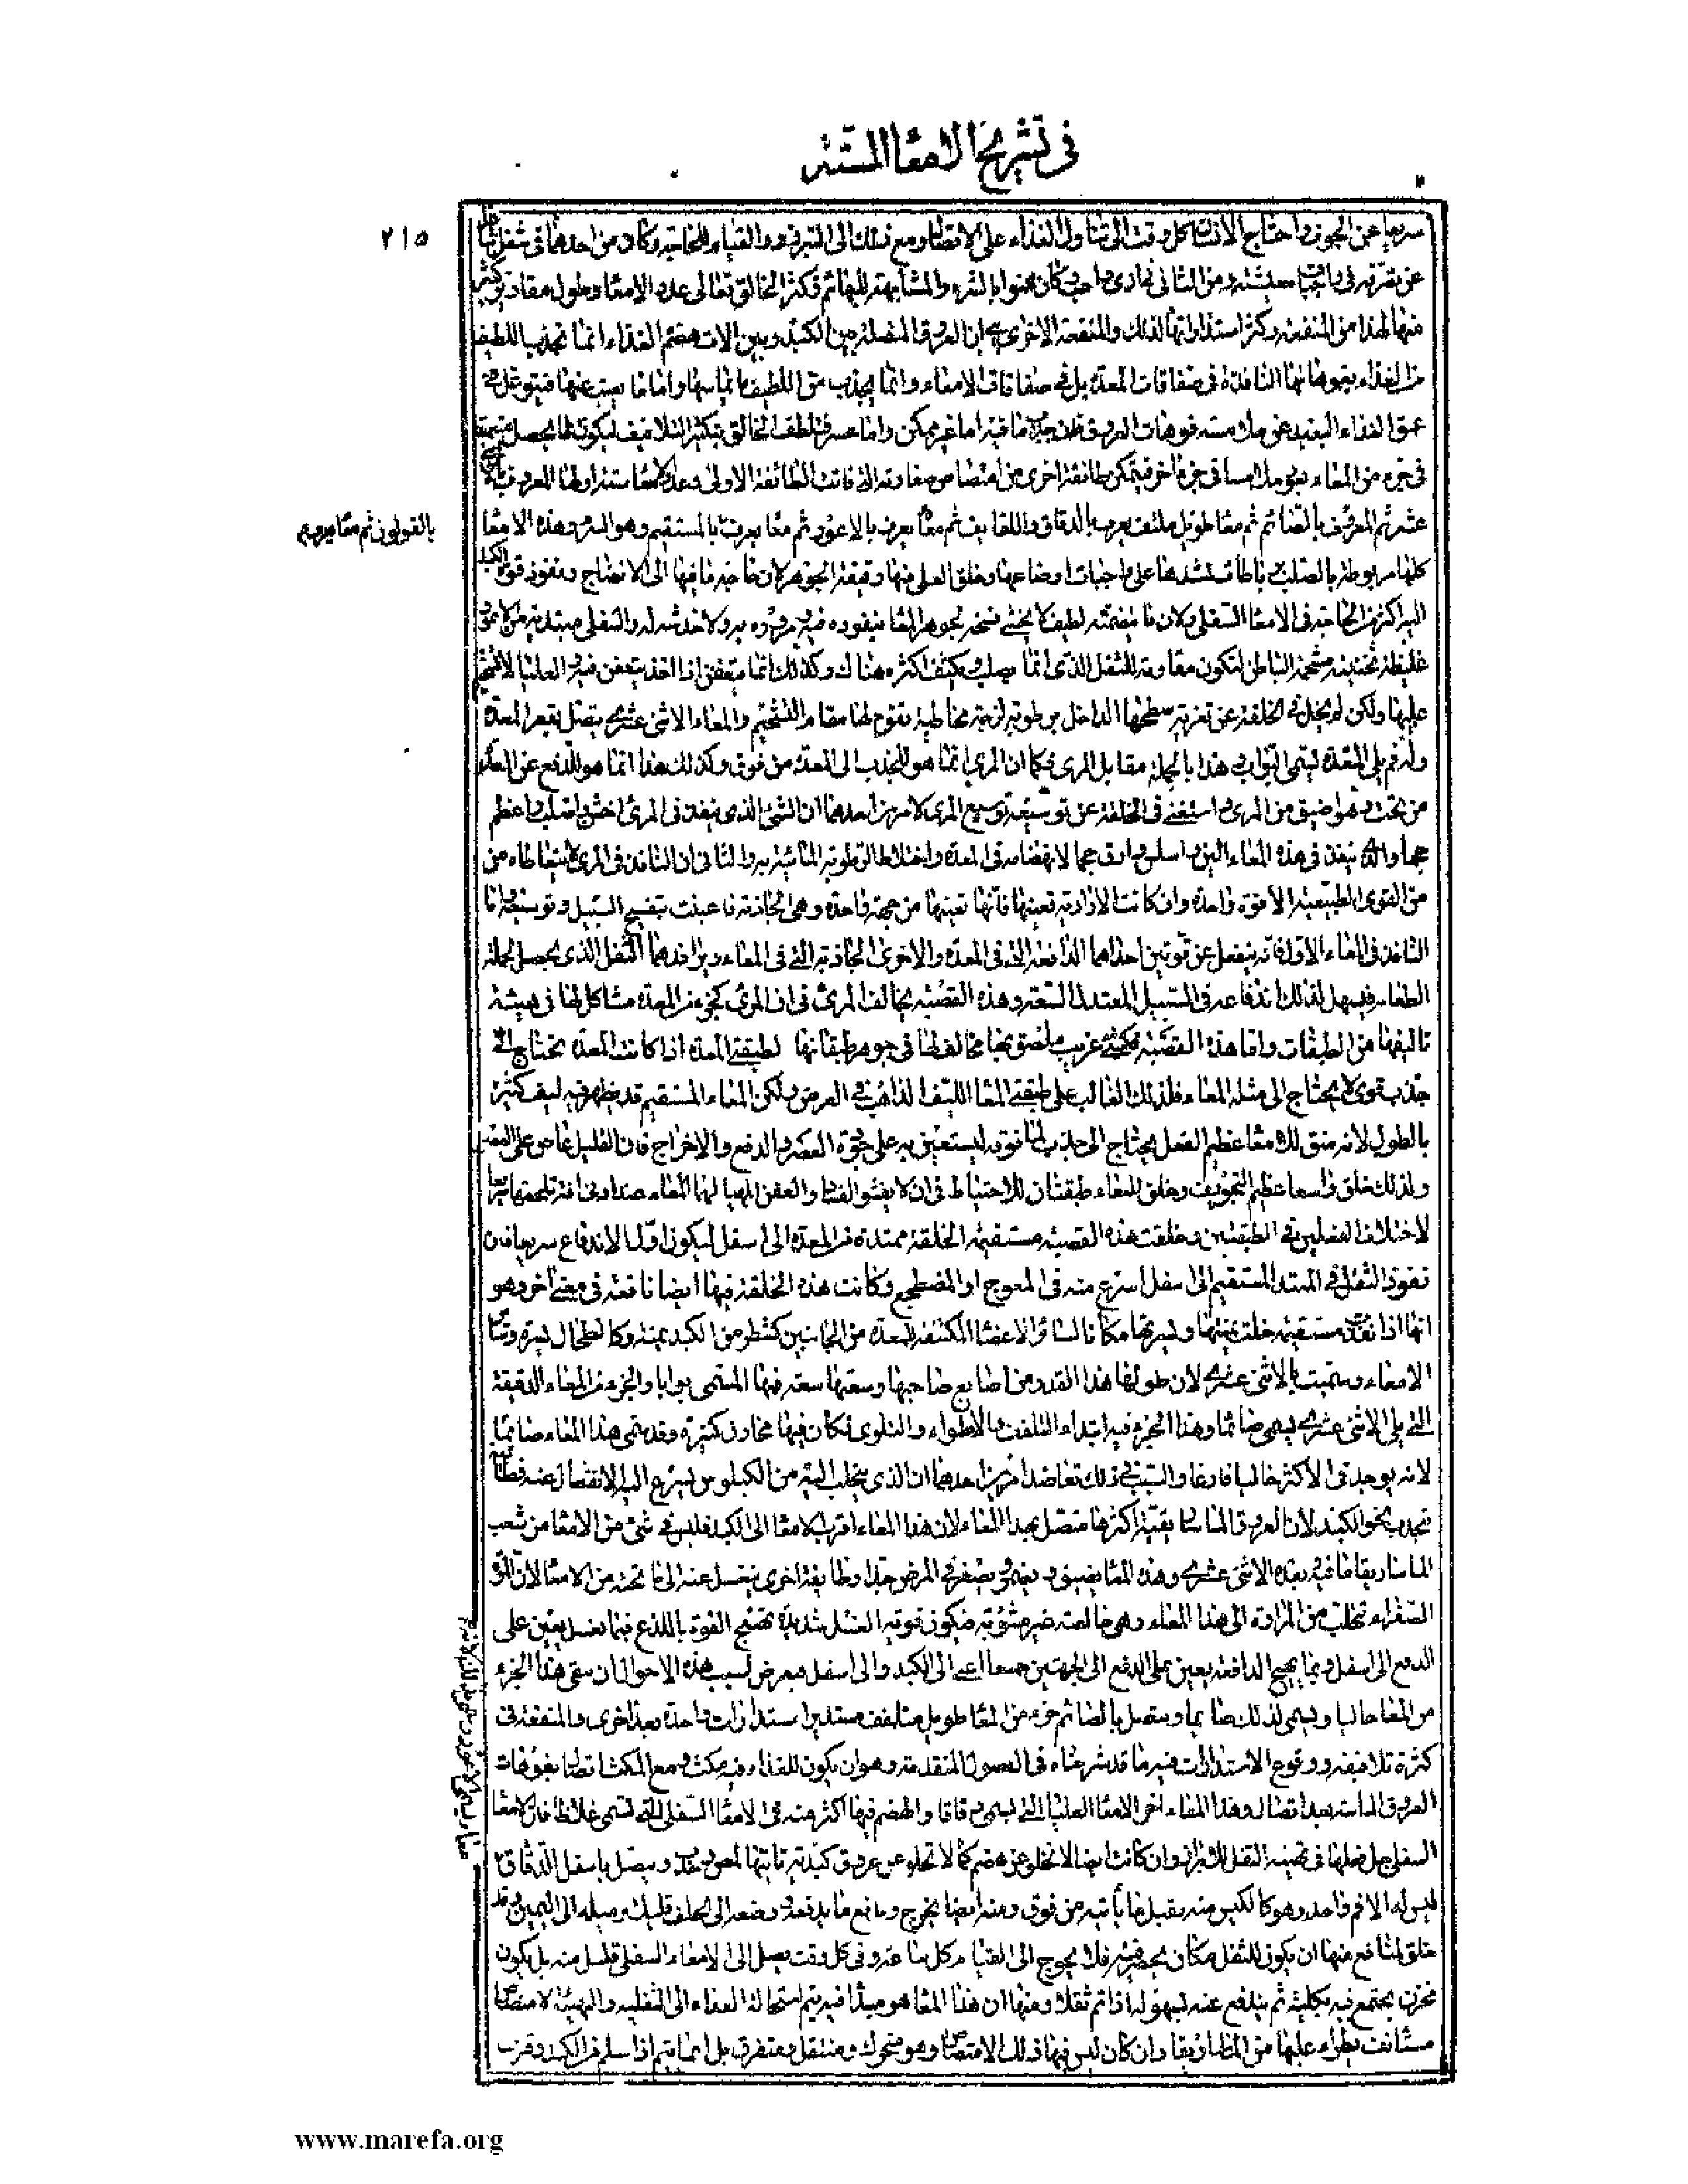 فى تشريح الامعا الستة
٢١٥
سريعا عن الجوف واحتاج الانسان كل وقت الى تناول الغذاء على الاتصال ومع ذلك الى التبرز والقيام للحاجة وكان من احدهما فى شغل شاغل
عن تصرفه فى واجبات معيشته ومن الثانى فى اذى واصب وكان ممنوا بالشره والمشابهة للبهائم فكثر الخالق تعالى عدد الامعا وطول مقادير كثير
منها لهذا من المنفعة وكثر استداراتها لذلك والمنفعة الاخرى هى ان العروق المتصلة بين الكبد وبين الات هضم الغذاء انما تجذب اللطيف
من الغذاء بفوهاتها النافذة فى صفاقات المعدة بل فى صفاقات الامعاء وانما يجذب من اللطيف ما يماسها واما ما يغيب عنها فيتوغل فى
عمق الغذاء البعيد عن ملامسة فوهات العروق فان جذب ما فيه اما غير ممكن واما عسر فتلطف الخالق بتكثير التلافيف ليكون ما يحصل متعمقا
فى جزء من المعاء يعود ملامسا فى جزء اخر فيتمكن طائفة اخرى من امتصاص صفاوته التى فاتت الطائفة الاولى وعدد الامعا ستة اولها المعروف بالاثنى
عشر ثم المعروف بالصائم ثم معا طويل ملتف يعرف بالدقاق واللفايف ثم معا يعرف بالاعور ثم معا يعرف بالمستقيم وهو السرم وهذه الامعا
بالقولون ثم معا يعرف
كلها مربوطة بالصلب برباطات تشدها على واجبات اوضاعها وخلق العليا منها رقيقة الجوهر لان حاجة ما فيها الى الانضاج ونفوذ قوة الكبد
اليه اكثر من الحاجة فى الامعا السفلى ولان ما يتضمنه لطيف لا يخشى فسخه لجوهر المعا بنفوذه فيه ومروره به ولا خدشه له والسفلى مبتدية من الاعور
غليظة ثخينة مشحمة الباطن لتكون مقاومة للثفل الذى انما يصلب ويكثف اكثره هناك وكذلك انما يتعفن اذا اخذ يتعفن فيه والعليا لا شحم
عليها ولكن لم يخل فى الخلقة عن تغرية سطحها الداخل برطوبة لزجة مخاطية تقوم لها مقام التشحيم والمعاء الاثنى عشرى يتصل بقعر المعدة
وله فم يلى المعدة يسمى البواب وهذا بالجملة مقابل المرى فكما ان المرى انما هو للجذب الى المعدة من فوق وكذلك هذا انما هو للدفع عن المعدة
من تحت وهو اضيق من المرى واستغنى فى الخلقة عن توسيعه توسيع المرى لامرين احدهما ان الشئ الذى ينفذ فى المرى اخشن واصلب واعظم
حجما والذى ينفذ فى هذه المعاء الين واسلس وارق حجما لانهضامه فى المعدة واختلاط الرطوبة المائية به والثانى ان النافذ فى المرى لا يتعاطاه من
من القوى الطبيعية الا قوة واحدة وان كانت الارادية تعينها فانها تعينها من جهة واحدة وهى الجاذبة فاعينت بتفسيح السبيل وتوسيعه واما
النافذ فى المعاء الاول فانه ينفعل عن قوتين احداهما الدافعة التى فى المعدة والاخرى الجاذبة التى فى المعاء ويرافدهما الثقل الذى يحصل بجملة
الطعام فيسهل لذلك اندفاعه فى السبيل المعتدل السعة وهذه القصبة يخالف المرى فى ان المرى كجزء من المعدة مشاكل لها فى هيئة
تاليفها من الطبقات واما هذه القصبة فكشئ غريب ملصق بها مخالف لها فى جوهر طبقاتها لطبقتى المعدة اذا كانت المعدة تحتاج الى
جذب قوى لا يحتاج الى مثله المعاء فلذلك الغالب على طبقتى المعا الليف الذاهب فى العرض ولكن المعاء المستقيم قد يظهر فيه ليف كثير
بالطول لانه منق للامعا عظيم الفعل يحتاج الى جذب لما فوقه ليستعين به على جودة العصر والدفع والاخراج فان القليل عاص على العصر
ولذلك خلق واسعا عظيم التجويف وخلق للمعاء طبقتان للاحتياط فى ان لا يفشو الفساد والعفن المهيا لها المعاء عند ادنى افة تلحقها سريعا
لاختلاف الفعلين فى الطبقتين وخلقت هذه القصبة مستقيمة الخلقة ممتدة من المعدة الى اسفل ليكون اول الاندفاع سريعا فان
نفوذ الثفل فى الممتد المستقيم الى اسفل اسرع منه فى المعوج او المضطجع وكانت هذه الخلقة فيها ايضا نافعة فى معنى اخر وهو
انها اذا نفذت مستقيمة خلت يمنتها ويسرتها مكانا لسائر الاعضا المكتنفة للمعدة من الجانبين كشطر من الكبد يمنة وكالطحال يسرة وسائر
الامعاء وسميت بالاثنى عشرى لان طولها هذا القدر من اصابع صاحبها وسعتها سعة فمها المسمى بوابا والجزء من المعاء الدقيقة
التى يلى الاثنى عشرى يسمى صائما وهذا الجزء فيه ابتداء التلفف والانطواء والتلوى وكان فيها مخازن كثيرة وقد سمى هذا المعاء صائما
لانه يوجد فى الاكثر خاليا فارغا والسبب فى ذلك تعاضد امرين احدهما ان الذى ينجلب اليه من الكيلوس يسرع اليه الانفصال عنه فطائفة
تنجذب نحو الكبد لان العروق الماساريقية اكثرها متصل بهذا المعاء لان هذا المعاء اقرب الامعا الى الكبد فليس فى شئ من الامعا من شعب
الماساريقا ما فيه بعده الاثنى عشرى وهذه المعا يضيق ويضمر ويصغر فى المرض جدا وطايفة اخرى ينغسل عنه الى ما تحته من الامعا لان المرة
الصفراء تتحلب من المرارة الى هذا المعاء وهى خالصة غير مشوبة فيكون قوية الغسل شديدة تهييج القوة باللذع فبما يغسل يعين على
الدفع الى اسفل وبما يهيج الدافعة يعين على الدفع الى الجهتين جميعا اعنى الى الكبد والى اسفل فيعرض بسبب هذه الاحوال ان يبقى هذا الجزء
من المعا خاليا ويسمى لذلك صائما ويتصل بالصائم جزء من المعا طويل متلفف مستدير استدارات واحدة بعد اخرى والمنفعة فى
كثرة تلافيفه ووقوع الاستدارات فيه ما قد شرحناه فى الفصول المتقدمة وهو ان يكون للغذاء فيه مكث ومع المكث اتصال بفوهات
العروق الماصة بعد اتصال وهذا المعاء اخر الامعا العليا التى تسمى دقاقا والهضم فيها اكثر منه فى الامعا السفلى التى تسمى غلاظا فان الامعا
السفلى جل فعلها فى تهيئة الثفل للابراز وان كانت ايضا لا تخلو عن هضم كما لا تخلو عن عروق كبدية تاتيها بمص وجذب ويتصل باسفل الدقاق
ليس له الا فم واحد وهو كالكيس منه يقبل ما يأتيه من فوق ومنه ايضا يخرج ويدفع ما يدفعه ووضعه الى الخلف قليلا وميله الى اليمين وقد
خلق لمنافع منها ان يكون للثفل مكان يحصره فيه فلا يحوج الى القيام كل ساعة وفى كل وقت يصل الى الامعاء السفلى قليل منه بل يكون
مخزن يجتمع فيه بكليته ثم يندفع عنه بسهولة اذا تم ثفلا ومنها ان هذا المعا هو مبدأ فيه يتم استحالة الغذاء الى الثفلية والتهيئة لامتصاص
مستانف يطراء عليها من الماساريقا وان كان ليس فيها ذلك الامتصاص وهو متحرك ومنتقل ومتفرق بل انما يتم اذا سلم من الكبد وقرب
www.marefa.org